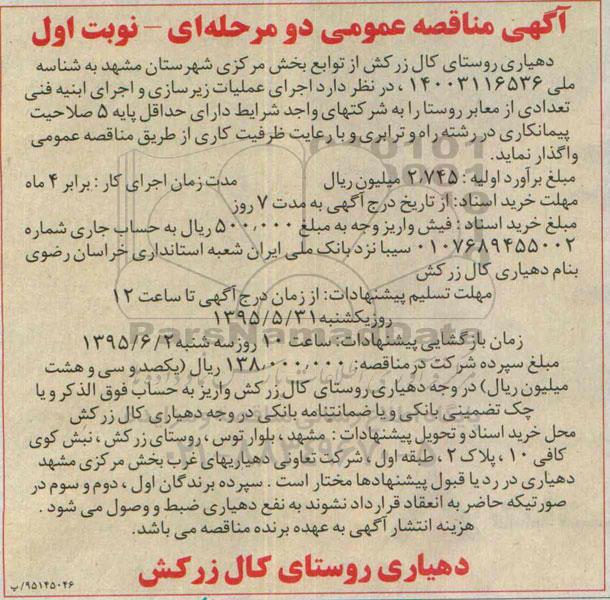 آگهی مناقصه عمومی دو مرحله‌ای – نوبت اول
دهیاری روستای کال زرکش از توابع بخش مرکزی شهرستان مشهد به شناسه
ملی ۱۴۰۰۳۱۱۶۵۳۶ ، در نظر دارد اجرای عملیات زیرسازی و اجرای ابنیه فنی
تعدادی از معابر روستا را به شرکتهای واجد شرایط دارای حداقل پایه ۵ صلاحیت
پیمانکاری در رشته راه و ترابری و با رعایت ظرفیت کاری از طریق مناقصه عمومی
واگذار نماید.
مبلغ برآورد اولیه : ۲،۷۴۵ میلیون ریال مدت زمان اجرای کار : برابر ۴ ماه
مهلت خرید اسناد: از تاریخ درج آگهی به مدت ۷ روز
مبلغ خرید اسناد : فیش واریز وجه به مبلغ ۵۰۰،۰۰۰ ریال به حساب جاری شماره
۰۱۰۷۶۸۹۴۵۵۰۰۲ سیبا نزد بانک ملی ایران شعبه استانداری خراسان رضوی
بنام دهیاری کال زرکش
مهلت تسلیم پیشنهادات: از زمان درج آگهی تا ساعت ۱۲
روز یکشنبه ۱۳۹۵/۵/۳۱
زمان بازگشایی پیشنهادات: ساعت ۱۰ روز سه شنبه ۱۳۹۵/۶/۲
مبلغ سپرده شرکت در مناقصه: ۱۳۸،۰۰۰،۰۰۰ ریال (یکصدو سی و هشت
میلیون ریال) در وجه دهیاری روستای کال زرکش واریز به حساب فوق الذکر و یا
چک تضمینی بانکی و یا ضمانتنامه بانکی در وجه دهیاری کال زرکش
محل خرید اسناد و تحویل پیشنهادات : مشهد ، بلوار توس ، روستای زرکش ، نبش کوی
کافی ۱۰ ، پلاک ۲ ، طبقه اول ، شرکت تعاونی دهیاریهای غرب بخش مرکزی مشهد
دهیاری در رد یا قبول پیشنهادها مختار است . سپرده برندگان اول ، دوم و سوم در
صورتیکه حاضر به انعقاد قرارداد نشوند به نفع دهیاری ضبط و وصول می شود .
هزینه انتشار آگهی به عهده برنده مناقصه می باشد.
دهیاری روستای کال زرکش
۹۵۱۴۵۰۴۶/پ
ParsNamadData